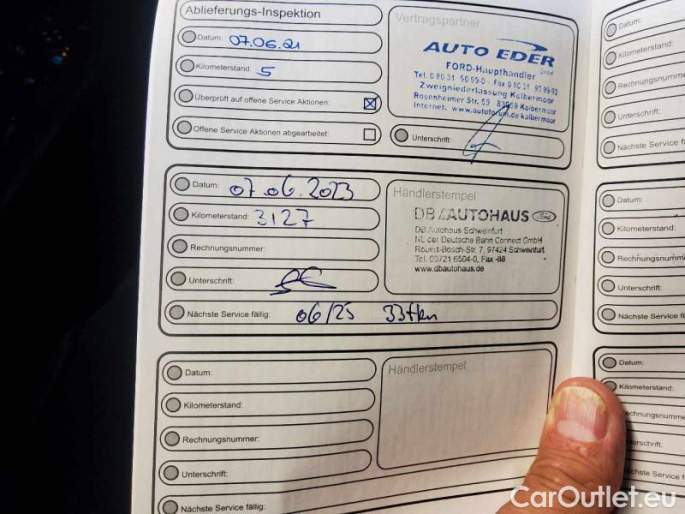 Ablieferungs-Inspektion
Datum: 07.06.21
Kilometerstand: 5
Überprüft auf offene Service Aktionen:
Offene Service Aktionen abgearbeitet:
Vertragspartner
AUTO EDER
FORD-Haupthändler
Zweigniederlassung Kolbermoor
Rosenheimer Str. 53 83059 Kolbermoor
Unterschrift:
Datum: 07.06.2023
Kilometerstand: 3127
Rechnungsnummer:
Unterschrift:
Nächste Service fällig: 06/25 33tkm
Händlerstempel
DB AUTOHAUS Ford
DB Autohaus Schweinfurt
NL der Deutsche Bahn Connect GmbH
Robert-Bosch-Str. 7, 97424 Schweinfurt
Tel. 09721 6504-0, Fax -88
www.dbautohaus.de
Datum:
Kilometerstand:
Rechnungsnummer:
Unterschrift:
Nächste Service fällig:
Händlerstempel
Datum:
Kilometerstand:
Rechnungsnumme
Unterschrift:
Nächste Service fä
Datum:
Kilometerstand:
Rechnungsnumm
Unterschrift:
Nächste Service
Datum:
Kilometerstand:
CarOutlet.eu